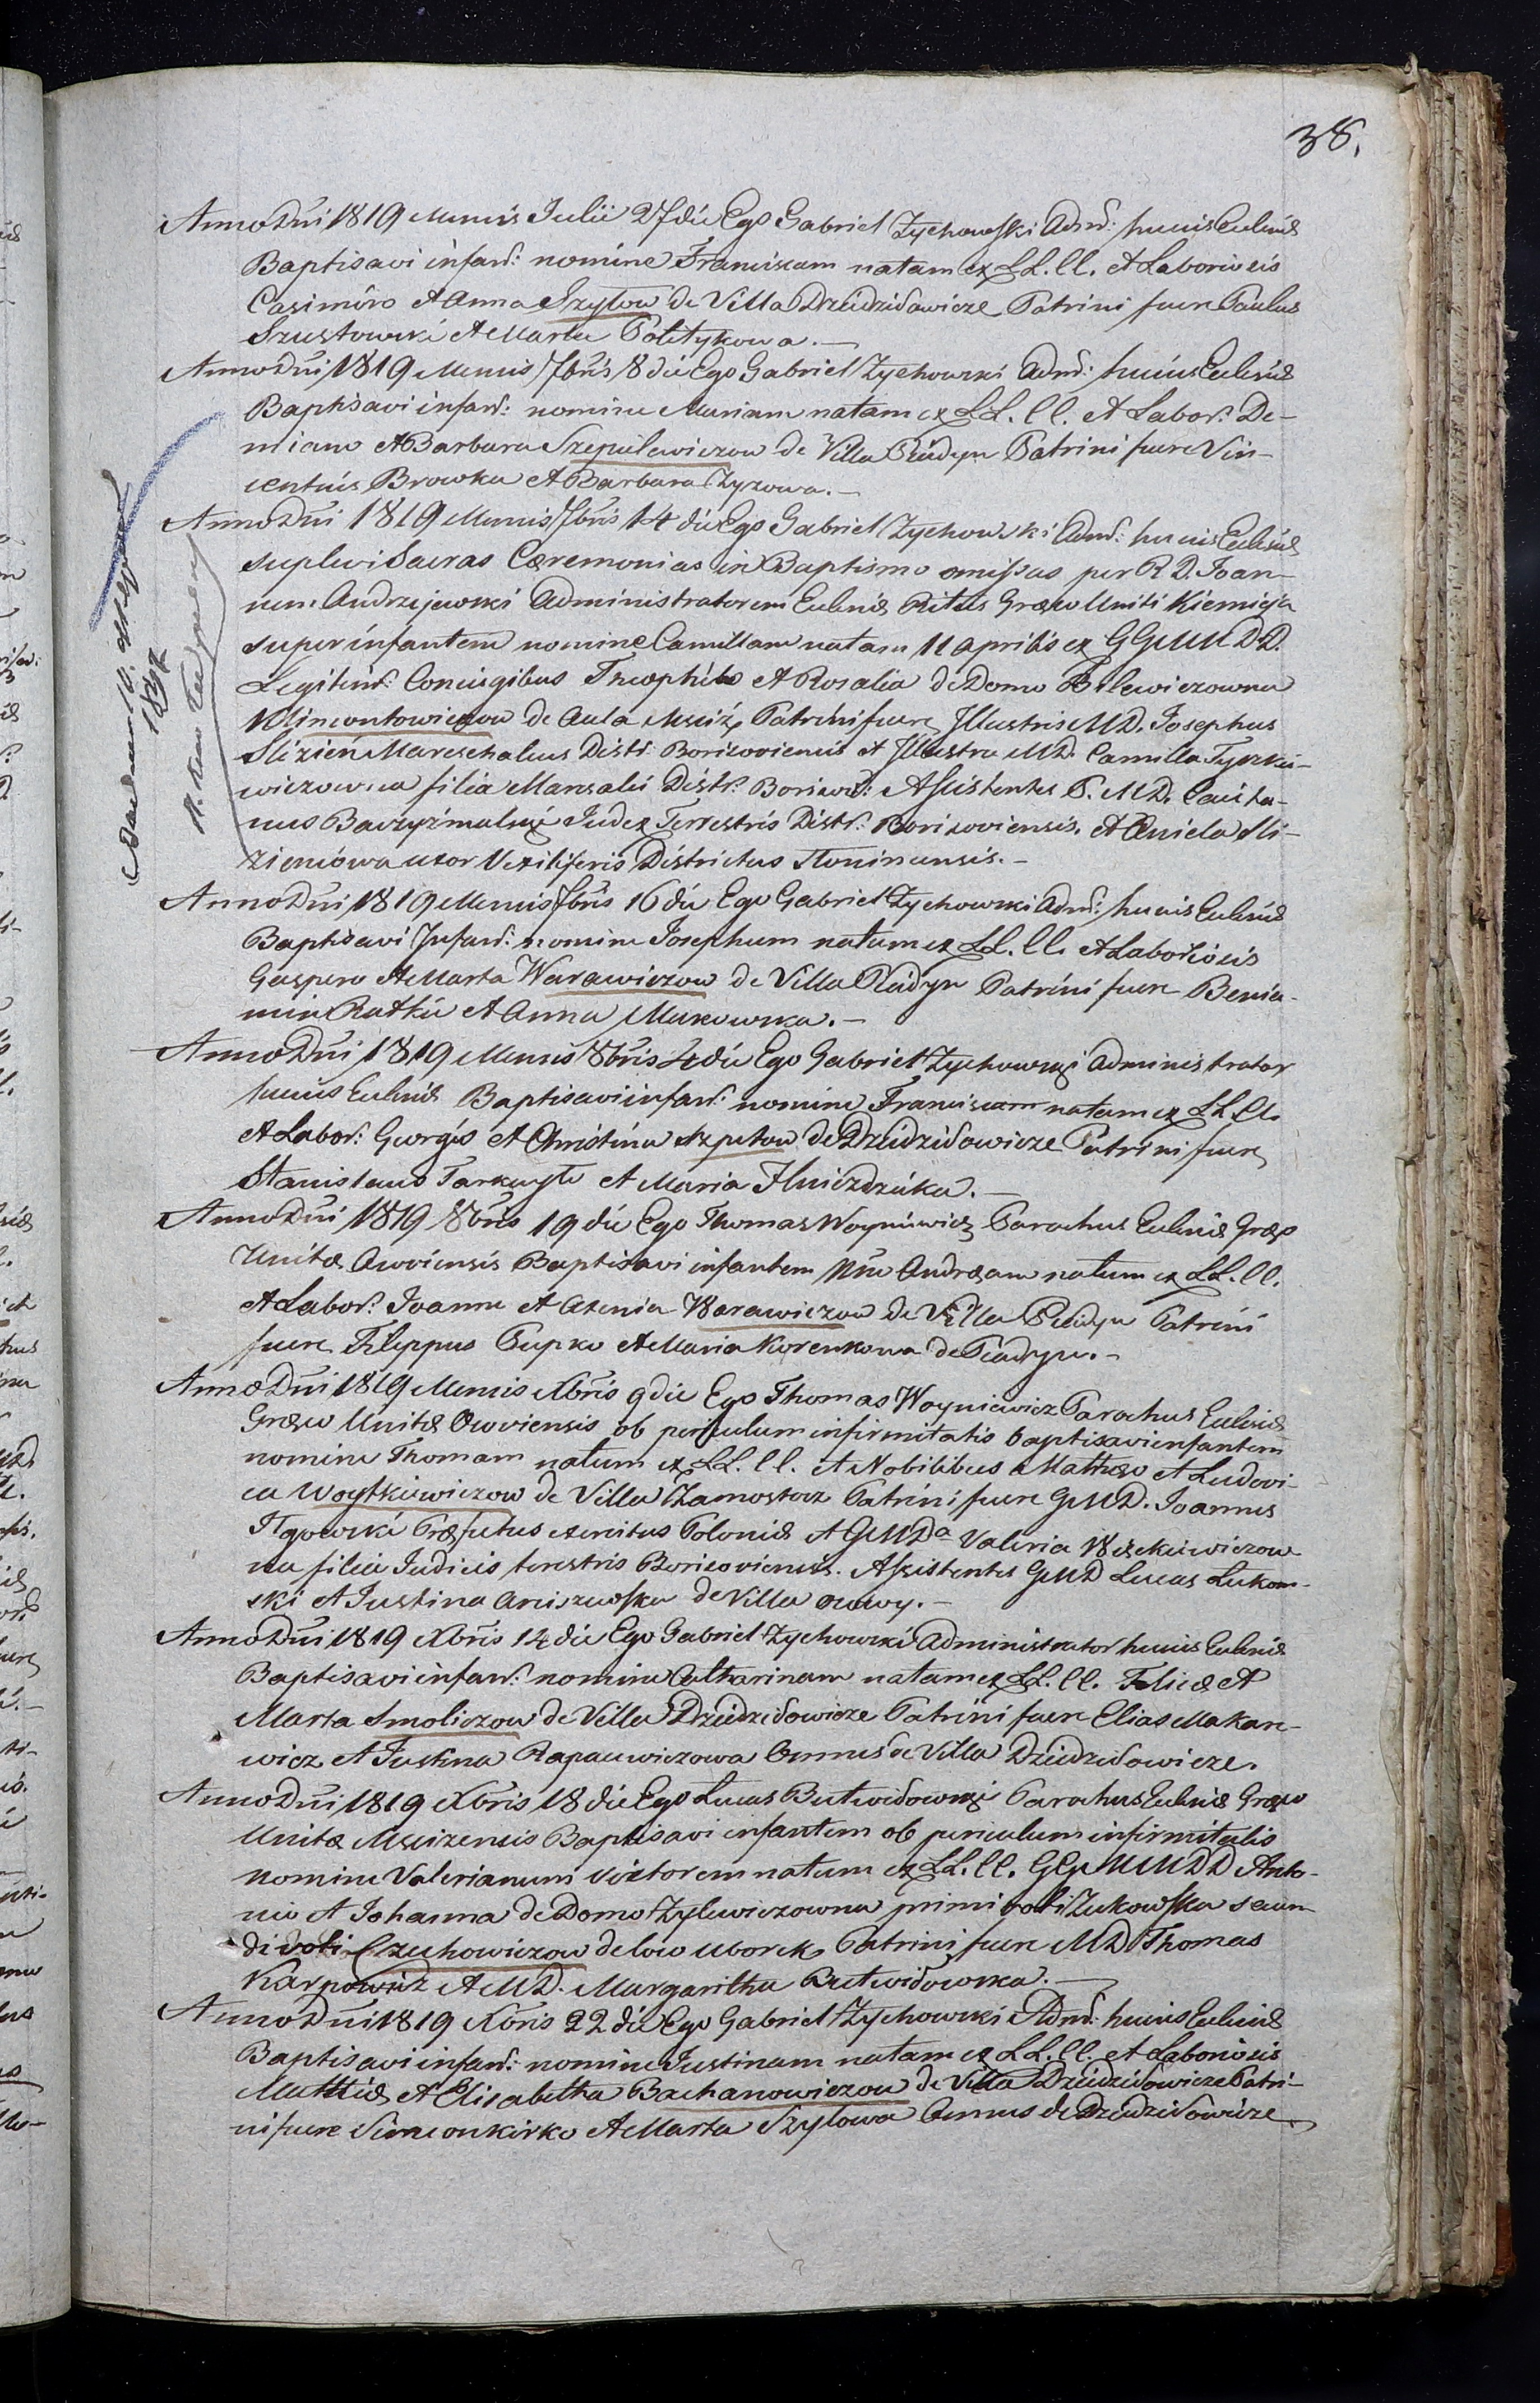 38.
Anno Dni 1819 Mensis Julii 27 die Ego Gabriel Zychowski Admr: huius Eccliæ
Baptisavi infan: nomine Franciscam natam ex LL. CC. et Laboriosis
Casimiro et Anna Szylow de Villa Dziedzidowicze Patrini fuere Paulus
Szustowski et Marta Politykowa.—
Anno Dni 1819 Mensis 7bris 8 die Ego Gabriel Zychowski Admr: huius Eccliæ
Baptisavi infan: nomine Mariam natam ex LL. CC. et Labor: De-
miano et Barbara Szepielewiczow de Villa Patrini fuere Vin-
centius Browka et Barbara Zyzowa.—
Anno Dni 1819 Mensis 7bris 14 die Ego Gabriel Zychowski Admr: huius Eccliæ
suplevi Sacras Cæremonias in Baptismo omissas per R D. Joan-
nem Andrzejewski Administratorem Eccliæ Ritus Græco Uniti
super infantem nomine Camillam natam 11 Aprilis ex G G M M D D.
Legitim: Coniugibus Theophilo et Rosalia de Domo Bilewiczowna
Klimontowiczow de Aula Mściż Patrini fuere Illustris MD. Josephus
Slizień Mareschalcus Distr: Borisoviensis et Illustra MD. Camilla Tyszkie-
wiczowna filia Marsalci Distr: Borisov: Assistentes G. MD. Caieta-
nus Judex Terrestris Distr: Borisoviensis. et Aniela Sli-
zieniowa uxor Vexiliferis Districtus Słoninensis.—
Anno Dni 1819 Mensis 7bris 16 die Ego Gabriel Zychowski Admr: huius Eccliæ
Baptisavi Infan: nomine Josephum natum ex LL. CC. et Laboriosis
Gaspero et Marta Warawiczow de Villa Patrini fuere Benia-
min et Anna Makowska.—
Anno Dni 1819 Mensis 8bris 4 die Ego Gabriel Zychowski Administrator
huius Eccliæ Baptisavi infan: nomine Franciscam natam ex LL CC.
et Labor: Georgio et Christina Szpetow de Dziedzidowicze Patrini fuere
Stanislaus et Maria Hniezdzicka.—
Anno Dni 1819 8bris 19 die Ego Thomas Woyniewicz Parochus Eccliæ Græco
Unitæ Baptisavi infantem Nne Andræam natum ex LL. CC.
et Labor: Joanne et Axenia Warawiczow de Villa Patrini
fuere Filippus Pupko et Maria Korenkowa de
Anno Dni 1819 Mensis Xbris 9 die Ego Thomas Woyniewicz Parochus Eccliæ
Græco Unitæ ob periculum infirmitatis baptisavi infantem
nomine Thomam natum ex LL. CC. et Nobilibus Mathæo et Ludovi-
ca Woytkiewiczow de Villa Zamostocz Patrini fuere GMD. Joannes
Præfectus exercitus Poloniæ et GMDa Valeria
na filia Judicis terestris Borisoviensis. Assistentes GMD Lucas Lukom-
ski et Justina de Villa
Anno Dni 1819 Xbris 14 die Ego Gabriel Zychowski Administrator huius Eccliæ
Baptisavi infan: nomine Catharinam natam ex LL. CC. Felice et
Marta Smoliczow de Villa Dziedzidowicze Patrini fuere Elias Makare-
wicz et Justina Rapacewiczowa Omnes de Villa Dziedzidowicze.
Anno Dni 1819 Xbris 18 die Ego Lucas Butwidowski Parochus Eccliæ Græco
Unitæ Mscizensis Baptisavi infantem ob periculum infirmitatis
nomine Valerianum Victorem natum ex LL. CC. GG MM DD Anto-
nio et Johanna de Domo Zylewiczowna primi voti Zukowska secun-
di voti Czechowiczow de loco Uborek Patrini fuere MD Thomas
Karpowicz et MD. Margaritha Butwidowska.—
Anno Dni 1819 Xbris 22 die Ego Gabriel Zychowski Admr: huius Eccliæ
Baptisavi infan: nomine Justinam natam ex LL. CC. et Laboriosis
Mathia et Elisabetha Bachanowiczow de Villa Dziedzidowicze Patri-
ni fuere Simeon Kirko et Marta Szylowa Omnes de Dziedzidowicze